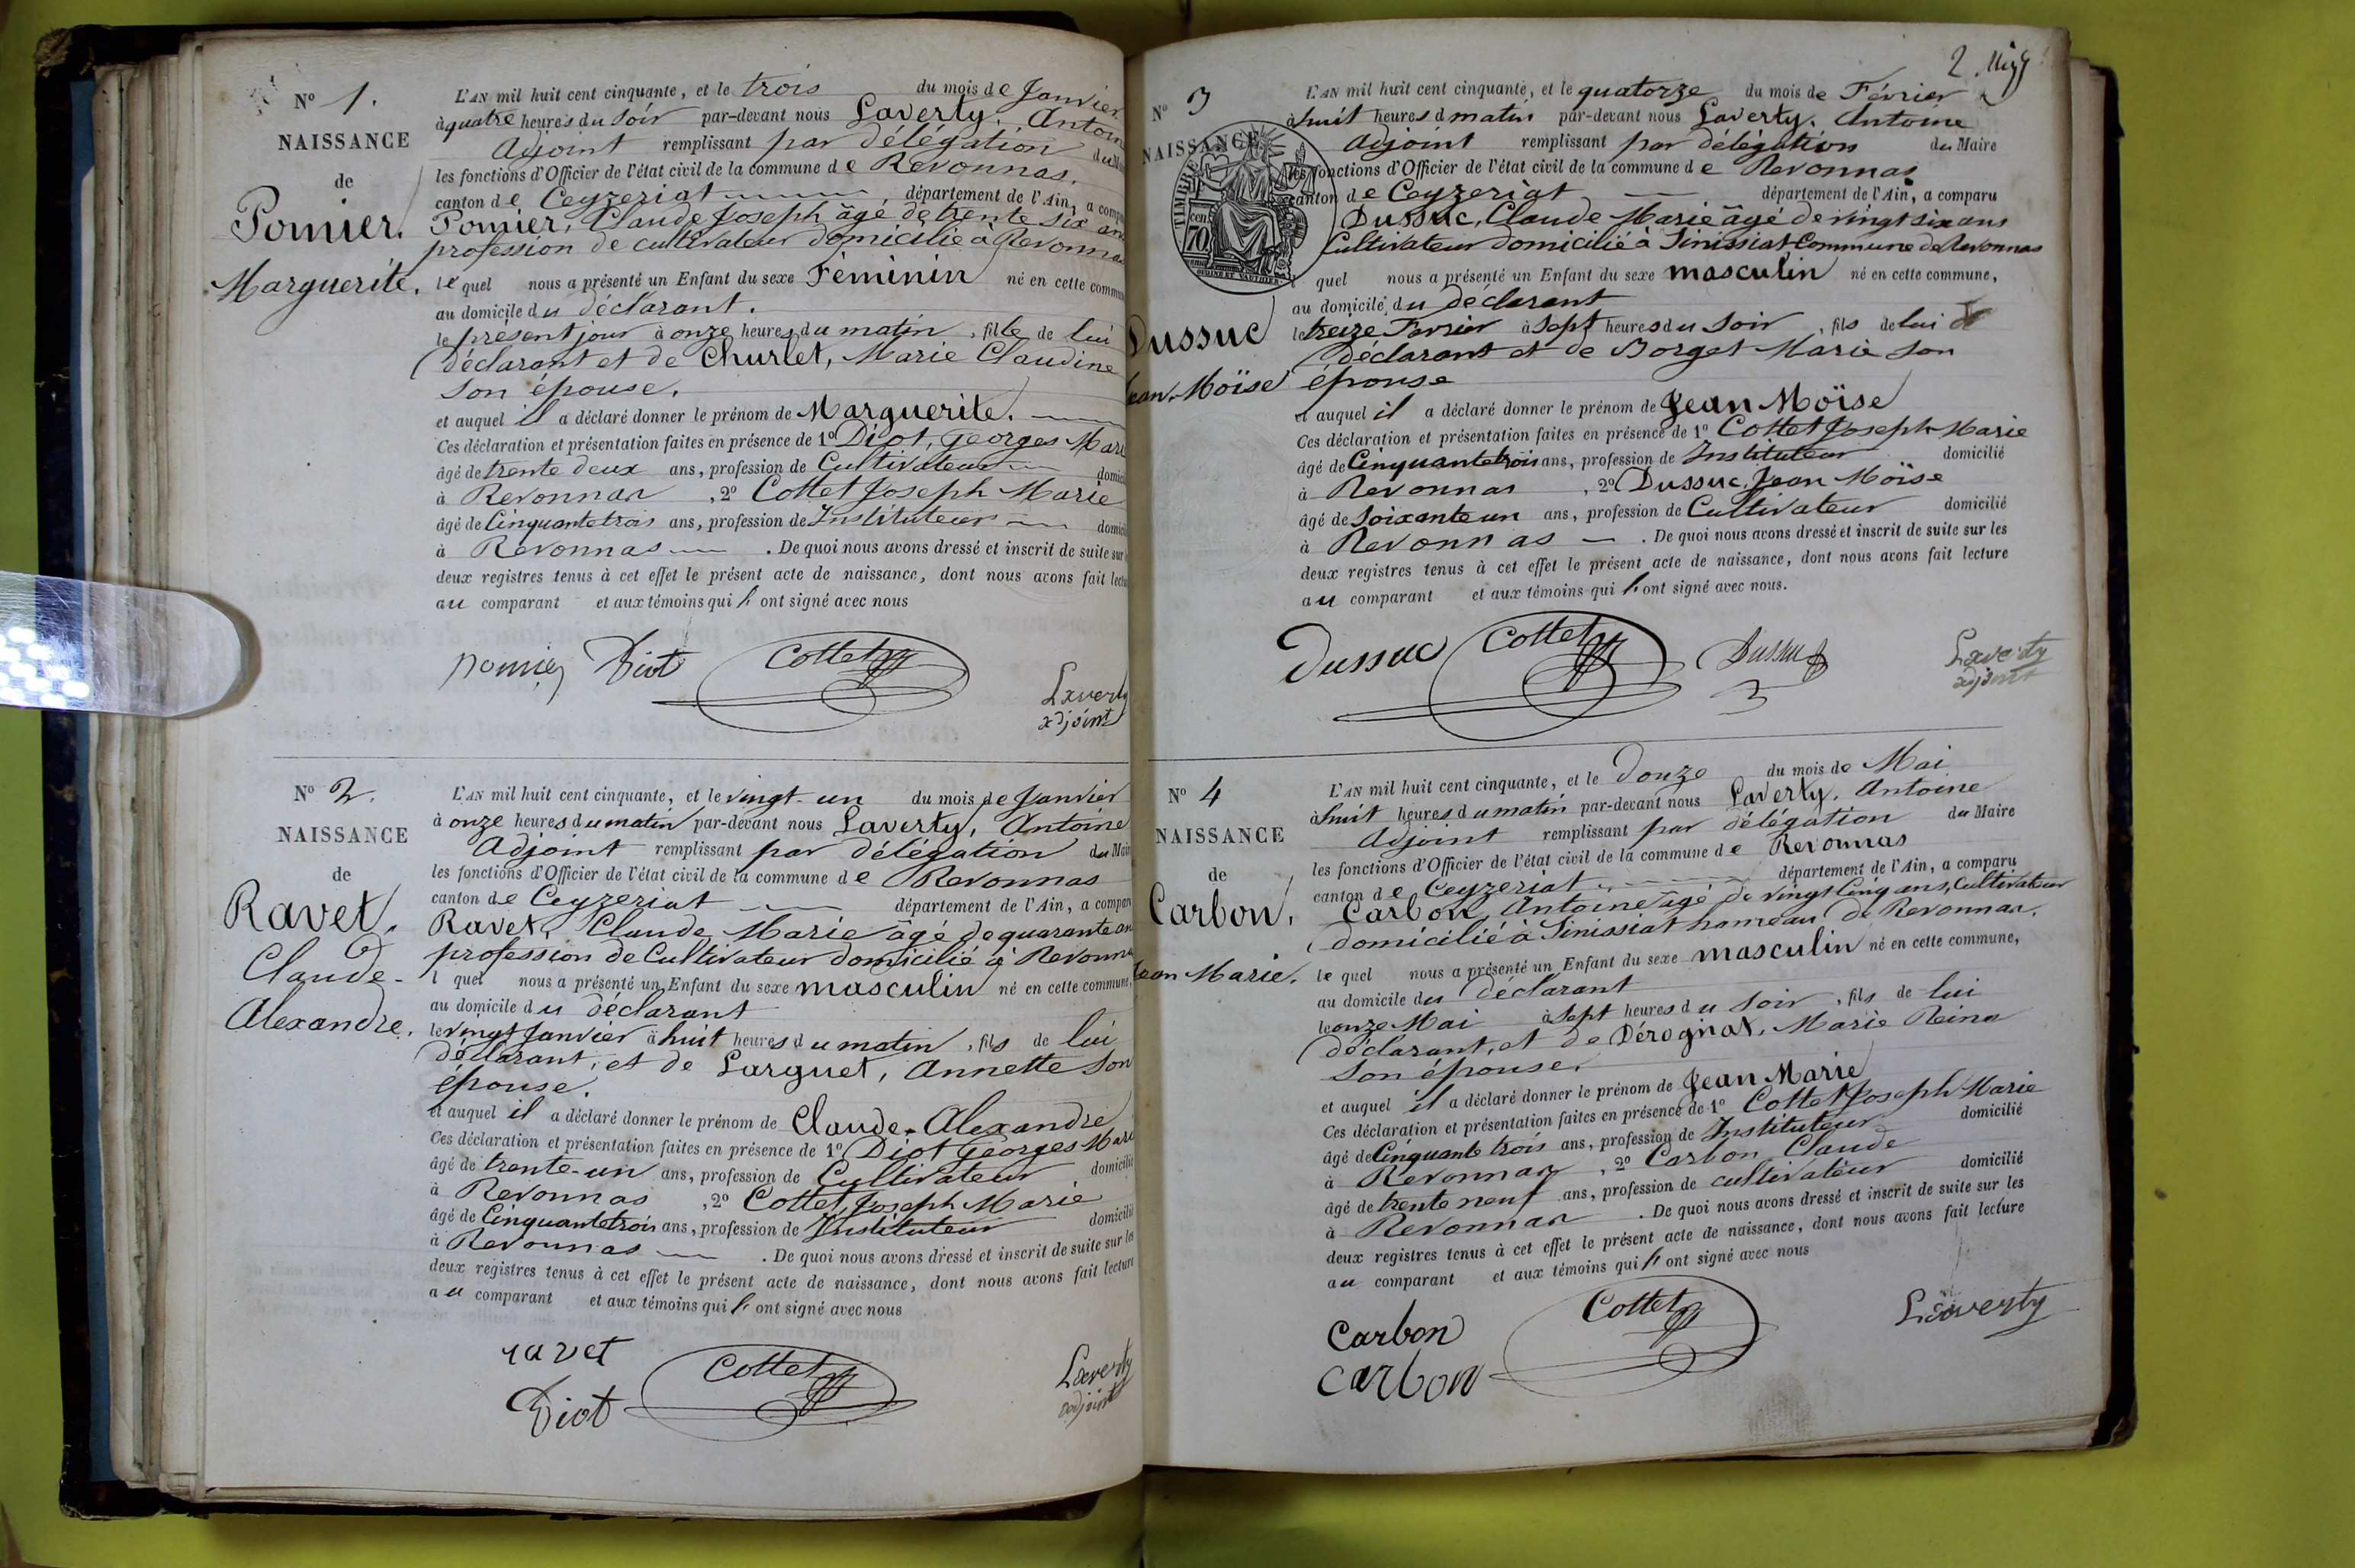 N° 1.
NAISSANCE
de
Pomier.
Marguerite.
L'AN mil huit cent cinquante, et le trois du mois de Janvier
à quatre heures du soir par-devant nous Laverty. Antoin
Adjoint remplissant par délégation du
les fonctions d'Officier de l'état civil de la commune de Revonnas.
canton de Ceyzeriat département de l'Ain, a comp
Pomier, Claude Joseph âgé de trente six an
profession de cultivateur domicilié à Revonna
le quel nous a présenté un Enfant du sexe Féminin né en cette commun
au domicile du déclarant.
le présent jour à onze heures du matin, fille de lui
déclarant et de Churlet, Marie Claudine
son épouse.
et auquel il a déclaré donner le prénom de Marguerite.
Ces déclaration et présentation faites en présence de 1° Diot, Georges Mari
âgé de trente deux ans, profession de Cultivateur domici
à Revonnas, 2° Cottet Joseph Marie
âgé de Cinquante trois ans, profession de Instituteur domici
à Revonnas. De quoi nous avons dressé et inscrit de suite sur
deux registres tenus à cet effet le présent acte de naissance, dont nous avons fait lectu
au comparant et aux témoins qui l'ont signé avec nous
pomier Diot Cottet
Laverty
adjoint
N° 2.
NAISSANCE
de
Ravet.
Claude-
Alexandre.
L'AN mil huit cent cinquante, et le vingt-un du mois de Janvier
à onze heures du matin par-devant nous Laverty, Antoine
Adjoint remplissant par délégation du Mair
les fonctions d'Officier de l'état civil de la commune de Revonnas
canton de Ceyzeriat département de l'Ain, a compar
Ravet, Claude Marie âgé de quarante an
profession de Cultivateur domicilié à Revonna
l quel nous a présenté un Enfant du sexe masculin né en cette commune,
au domicile du déclarant
le vingt Janvier à huit heures du matin, fils de lui
déclarant, et de Larguet, Annette son
épouse.
et auquel il a déclaré donner le prénom de Claude-Alexandre
Ces déclaration et présentation faites en présence de 1° Diot Georges Mari
âgé de trente-un ans, profession de Cultivateur domicilié
à Revonnas, 2° Cottet, Joseph Marie
âgé de Cinquante trois ans, profession de Instituteur domicilié
à Revonnas. De quoi nous avons dressé et inscrit de suite sur les
deux registres tenus à cet effet le présent acte de naissance, dont nous avons fait lecture
au comparant et aux témoins qui l'ont signé avec nous
ravet
Diot Cottet
Laverty
adjoint
2.
N° 3
NAISSANCE
TIMBRE
cen
70
OUDINÉ ET VAUTHIER
Dussuc
Jean. Moïse
L'AN mil huit cent cinquante, et le quatorze du mois de Février
à huit heures d matin par-devant nous Laverty. Antoine
Adjoint remplissant par délégation du Maire
les fonctions d'Officier de l'état civil de la commune de Revonnas
canton de Ceyzeriat département de l'Ain, a comparu
Dussuc, Claude Marie âgé de vingt six ans
Cultivateur domicilié à Sinissiat Commune de Revonnas
quel nous a présenté un Enfant du sexe masculin né en cette commune,
au domicile du déclarant
le treize Fevrier à sept heures du soir, fils de lui
déclarant et de Borget Marie son
épouse
et auquel il a déclaré donner le prénom de Jean Moïse
Ces déclaration et présentation faites en présence de 1° Cottet Joseph Marie
âgé de Cinquante trois ans, profession de Instituteur domicilié
à Revonnas, 2° Dussuc, Jean Moïse
âgé de soixante un ans, profession de Cultivateur domicilié
à Revonnas. De quoi nous avons dressé et inscrit de suite sur les
deux registres tenus à cet effet le présent acte de naissance, dont nous avons fait lecture
au comparant et aux témoins qui l'ont signé avec nous.
Dussuc Cottet Dussuc
Laverty
adjoint
N° 4
NAISSANCE
de
Carbon.
Jean Marie.
L'AN mil huit cent cinquante, et le Douze du mois de Mai
à huit heures du matin par-devant nous Laverty. Antoine
Adjoint remplissant par délégation du Maire
les fonctions d'Officier de l'état civil de la commune de Revonnas
canton de Ceyzeriat département de l'Ain, a comparu
Carbon, Antoine âgé de vingt Cinq ans, Cultivateur
domicilié à Sinissiat hameau de Revonnas.
le quel nous a présenté un Enfant du sexe masculin né en cette commune,
au domicile du déclarant
le onze Mai à sept heures du soir, fils de lui
déclarant, et de Dérognat, Marie Reine
son épouse.
et auquel il a déclaré donner le prénom de Jean Marie
Ces déclaration et présentation faites en présence de 1° Cottet Joseph Marie
âgé de Cinquante trois ans, profession de Instituteur domicilié
à Revonnas, 2° Carbon Claude
âgé de trente neuf ans, profession de cultivateur domicilié
à Revonnas. De quoi nous avons dressé et inscrit de suite sur les
deux registres tenus à cet effet le présent acte de naissance, dont nous avons fait lecture
au comparant et aux témoins qui l'ont signé avec nous
Carbon Cottet Laverty
carbon